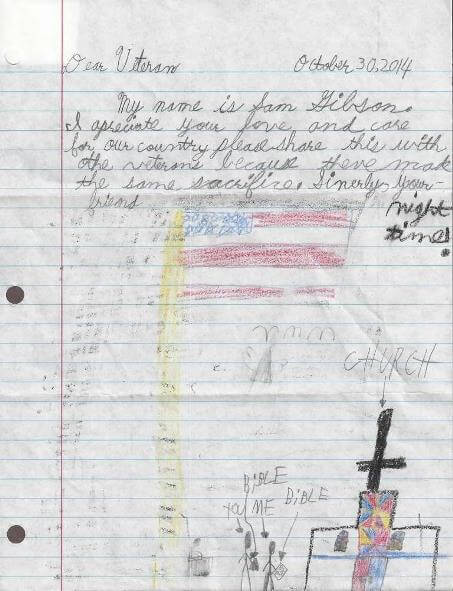 Dear Veteran October 30, 2014
My name is Sam Gibson.
I apreciate your love and care
for our country please share this with
othe veterans because theve made
the same sacrifice. Sinerly, your
friend
night
time!
CHURCH
BiBLE
ya ME BiBLE